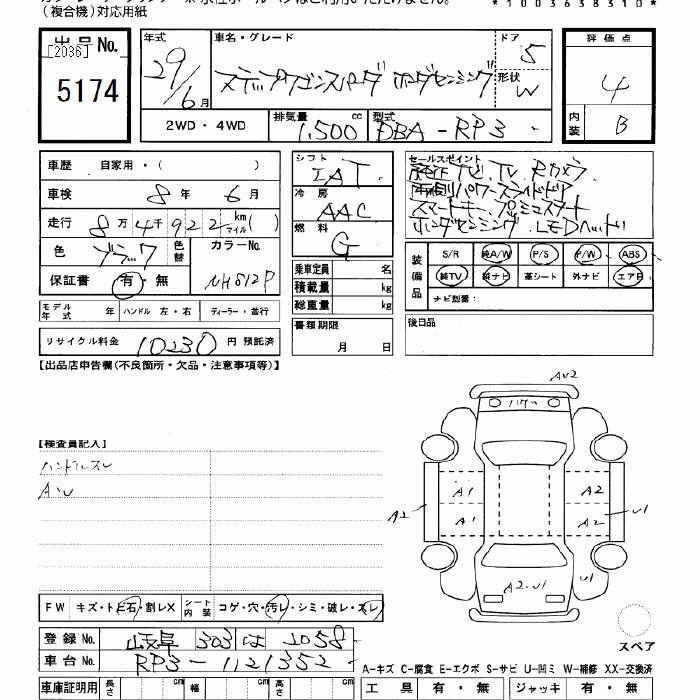 (複合機)対応用紙
*1003638310*
出品No.
[2036]
5174
年式
29/6月
車名・グレード
ステップワゴンスパーダ ホンダセンシング
ドア 5
形状 W
2WD・4WD
排気量 1,500 cc
型式 DBA-RP3
評価点
4
内装 B
車歴 自家用・( )
車検 8年 6月
走行 8万4千922 km マイル( )
色 ブラック 色替 カラーNo. NH812P
保証書 有・無
モデル年式 年 ハンドル 左・右 ディーラー・並行
リサイクル料金 10230 円 預託済
シフト IAT
冷房 AAC
燃料 G
乗車定員 名
積載量 kg
総重量 kg
書類期限
月 日
セールスポイント
ナビ TV Rカメラ
両側パワースライドドア
スマートキー プッシュスタート
ホンダセンシング LEDヘッド
装備品
S/R 純A/W P/S P/W ABS
純TV 純ナビ 革シート 外ナビ エアB
ナビ型番:
後日品
【出品店申告欄(不良箇所・欠品・注意事項等)】
【検査員記入】
ハンドルスレ
AU
AU2
A1 A2
A2 A1 A2 U1
A2.U1 U1
スペア
FW キズ・トビ石・割レX シート内装 コゲ・穴・汚レ・シミ・破レ・スレ
登録No. 岐阜 303 は 2058
車台No. RP3-1121352
車庫証明用 長さ cm 幅 cm 高さ cm
A-キズ C-腐食 E-エクボ S-サビ U-凹ミ W-補修 XX-交換済
工具 有・無 ジャッキ 有・無